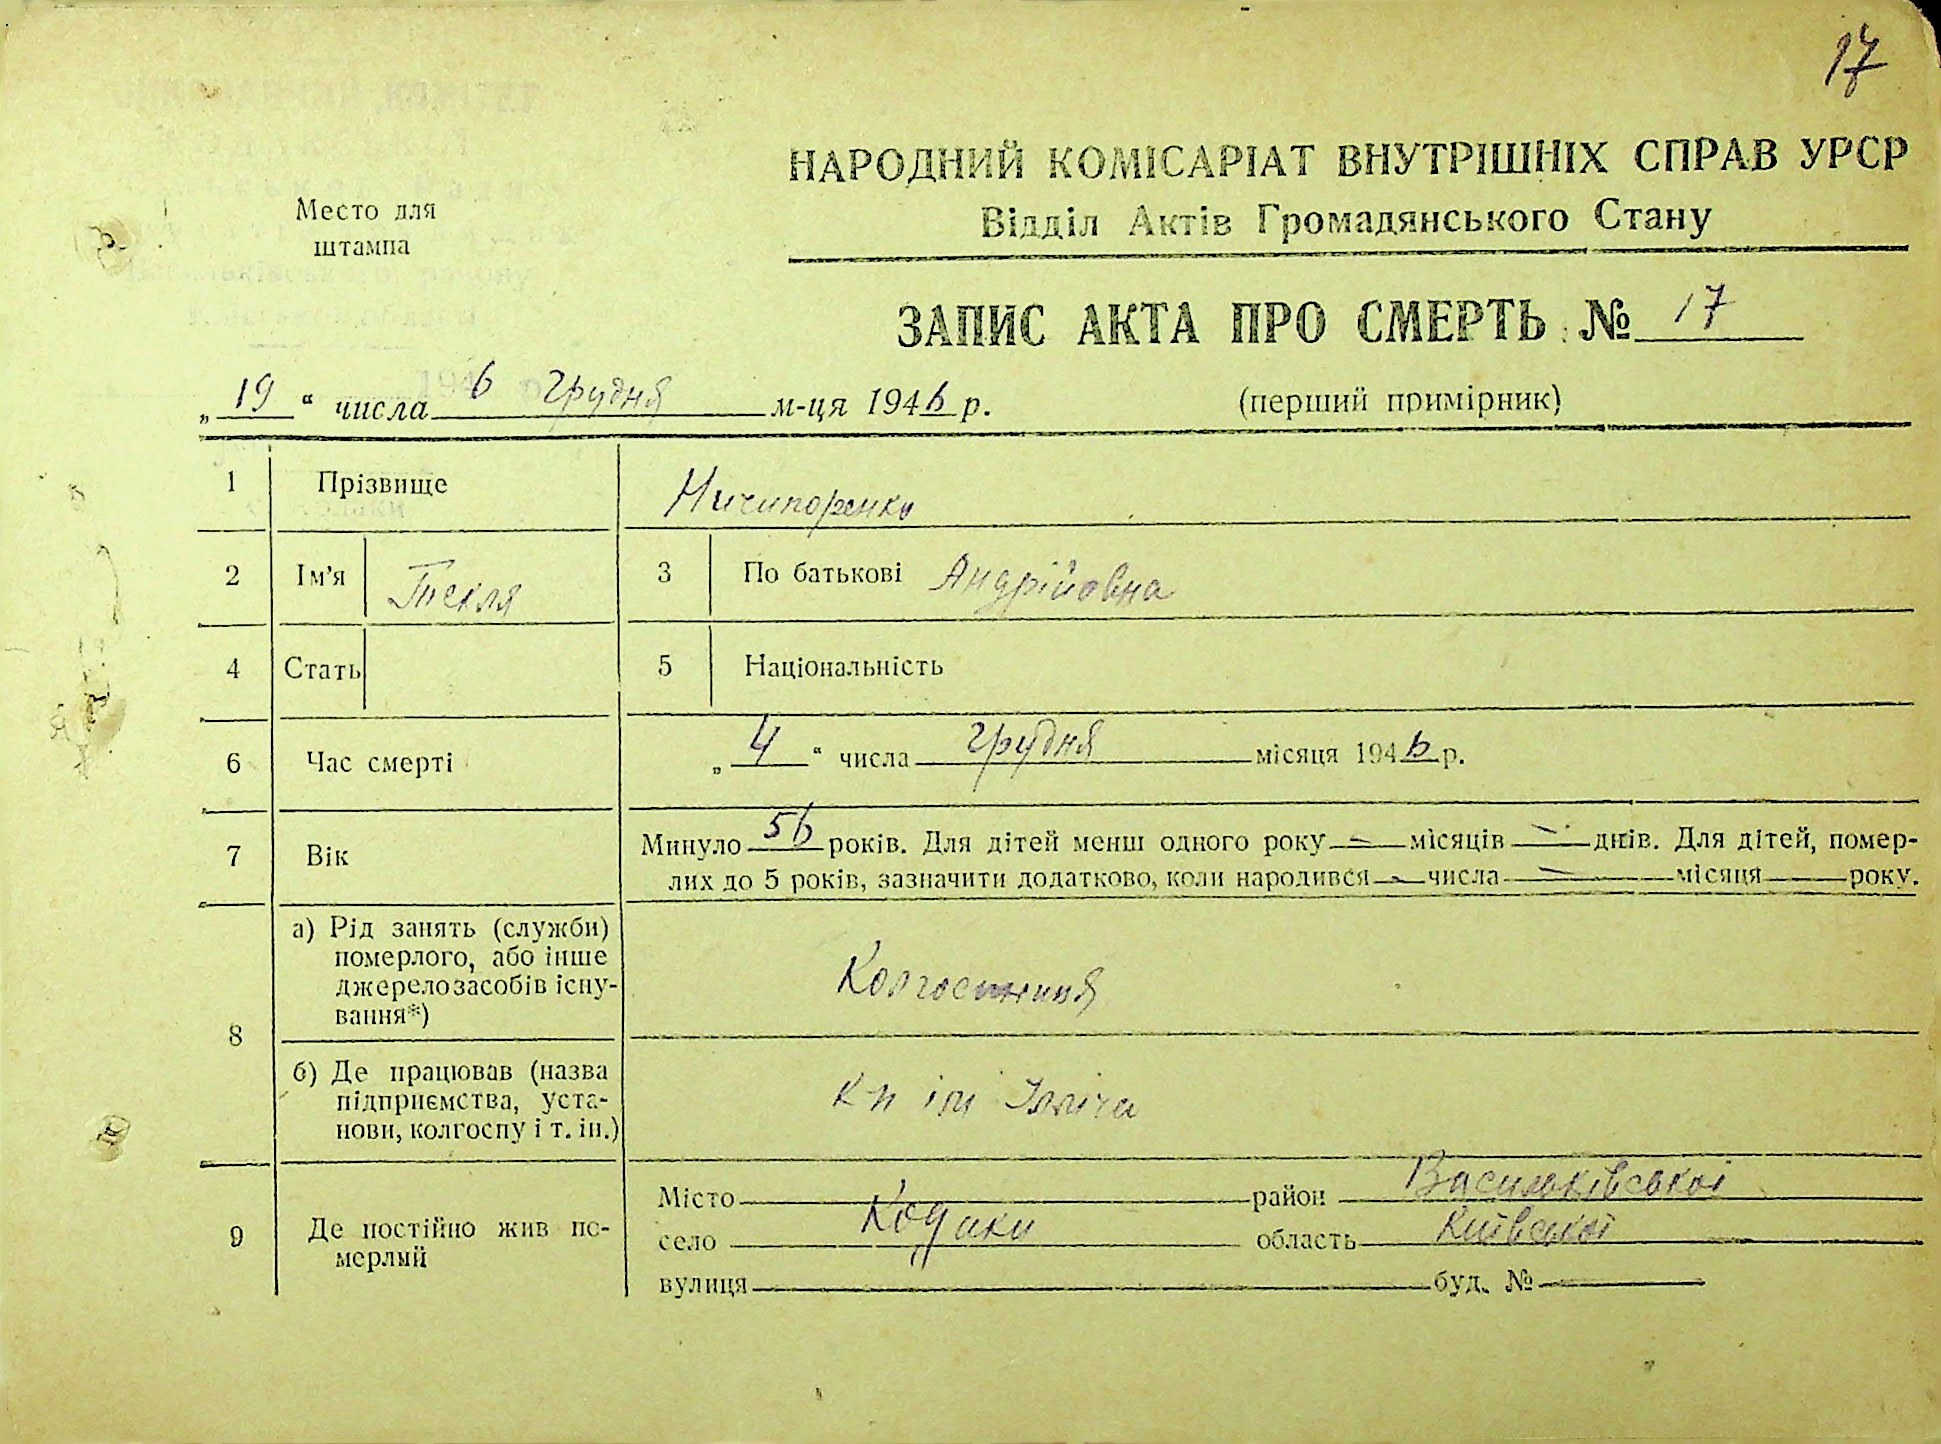 17
НАРОДНИЙ КОМІСАРІАТ ВНУТРІШНІХ СПРАВ УРСР
Відділ Актів Громадянського Стану
Место для
штампа
ЗАПИС АКТА ПРО СМЕРТЬ № 17
„19“ числа 6 грудня м-ця 1946 р.
(перший примірник)
1 Прізвище Ничипоренко
2 Ім'я Текля 3 По батькові Андрійовна
4 Стать 5 Національність
6 Час смерті „4“ числа грудня місяця 1946 р.
7 Вік Минуло 56 років. Для дітей менш одного року — місяців — днів. Для дітей, помер-
лих до 5 років, зазначити додатково, коли народився — числа — місяця року.
8 а) Рід занять (служби)
померлого, або інше
джерело засобів існу-
вання*)
Колгоспниця
б) Де працював (назва
підприємства, уста-
нови, колгоспу і т. ін.)
ім Ілліча
9 Де постійно жив по-
мерлий
Місто район Васильківської
село Кодаки область Київської
вулиця буд. №